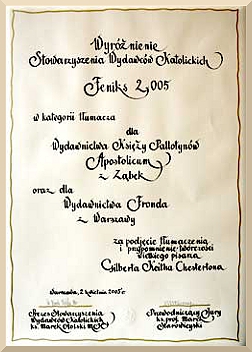 Wyróżnienie
Stowarzyszenia Wydawców Katolickich
Feniks 2005
w kategorii tłumacza
dla
Wydawnictwa Księży Pallotynów
Apostolicum
z Ząbek
oraz dla
Wydawnictwa Fronda
z Warszawy
za podjęcie tłumaczenia
i przypomnienie twórczości
wielkiego pisarza
Gilberta Keitha Chestertona
Warszawa, 2 kwietnia 2005 r.
Prezes Stowarzyszenia
Wydawców Katolickich
ks. Marek Otolski MIC
Przewodniczący Jury
ks. prof. Marek
Starowieyski